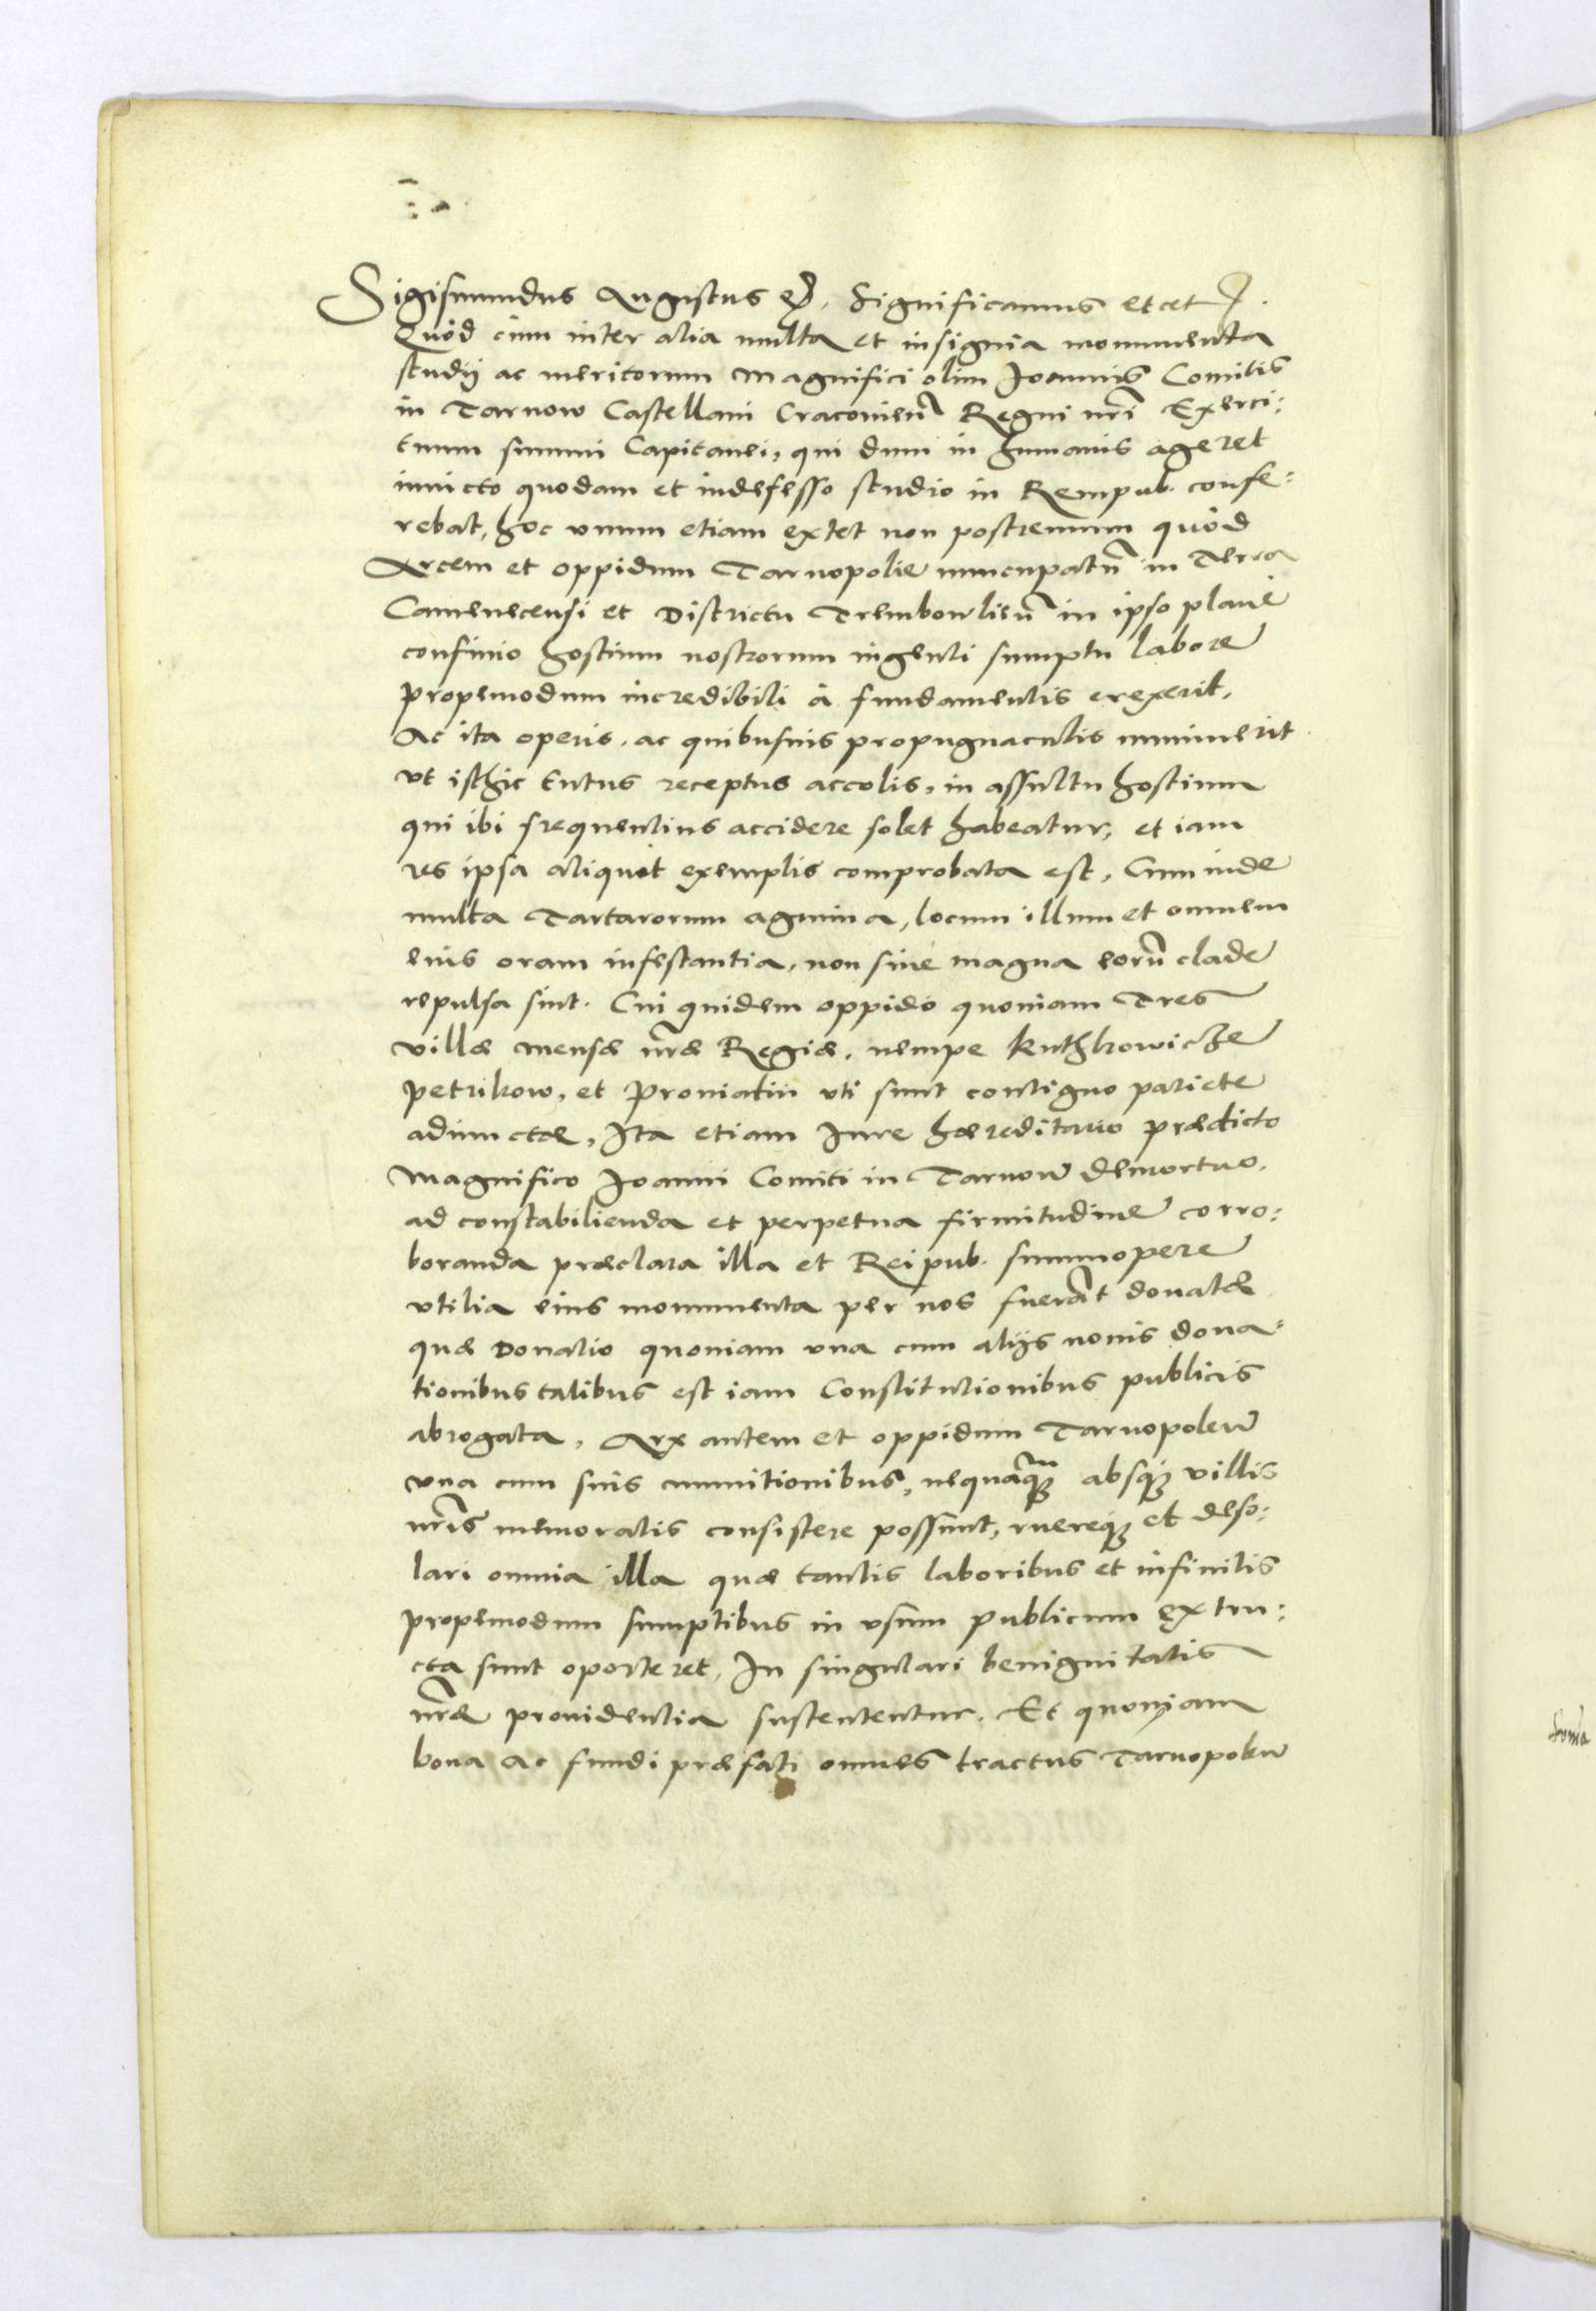 Sigismundus Augustus etc. Significamus etcet.
Quòd cùm inter alia multa et insignia monumenta
studij ac meritorum Magnifici olim Joannis Comitis
in Tarnow Castellani Cracovien Regni nri Exerci:
tuum summi Capitanei, qui dum in humanis ageret
invicto quodam et indefesso studio in Rempub. confe:
rebat, hoc unum etiam extet non postremum quòd
Arcem et oppidum Tarnopolie nuncupatu in Terra
Camenecensi et Districtu Trembowlien in ipso planè
confinio hostium nostrorum ingenti sumptu labore
propemodum incredibili à fundamentis erexerit,
Ac ita operis, ac quibusvis propugnaculis muniverit
ut isthic tutus receptus accolis, in assultu hostium
qui ibi frequentius accidere solet habeatur, et iam
res ipsa aliquot exemplis comprobata est, Cum inde
multa Tartarorum agmina, locum illum et omnem
eius oram infestantia, non sine magna eoru clade
repulsa sint. Cui quidem oppido quoniam Tres
villæ mensæ nræ Regiæ, nempe Kuthkowicze
Petrikow, et Proniatin uti sunt contiguo pariete
adiunctæ, Ita etiam Iure hæreditario prædicto
Magnifico Joanni Comiti in Tarnow demortuo,
ad constabilienda et perpetua firmitudine corro:
boranda præclara illa et Reipub. summopere
utilia eius monumenta per nos fuerat donatæ
quæ Donatio quoniam una cum alijs novis dona=
tionibus talibus est iam Constitutionibus publicis
abrogata, Arx autem et oppidum Tarnopolen
una cum suis munitionibus, nequaq absq villis
nris memoratis consistere possunt, ruereq et deso:
lari omnia illa quæ tantis laboribus et infinitis
propemodum sumptibus in usum publicum extru:
cta sunt oporteret, In singulari benignitatis
nræ providentia sustententur. Et quoniam
bona ac fundi præfati omnes tractus Tarnopolen